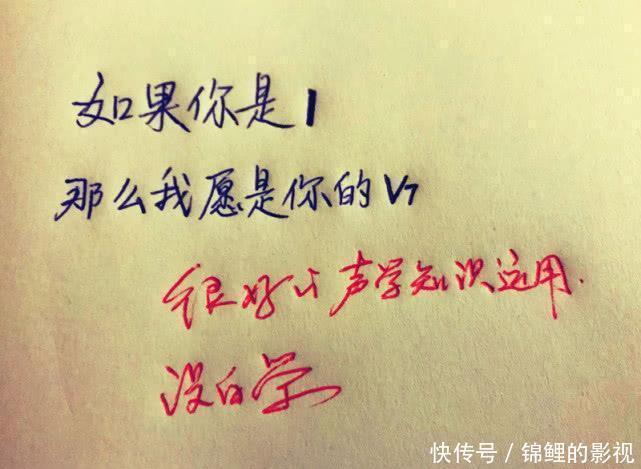 如果你是I
那么我愿是你的V7
很好以声学知识运用.
没白学
快传号/锦鲤的影视